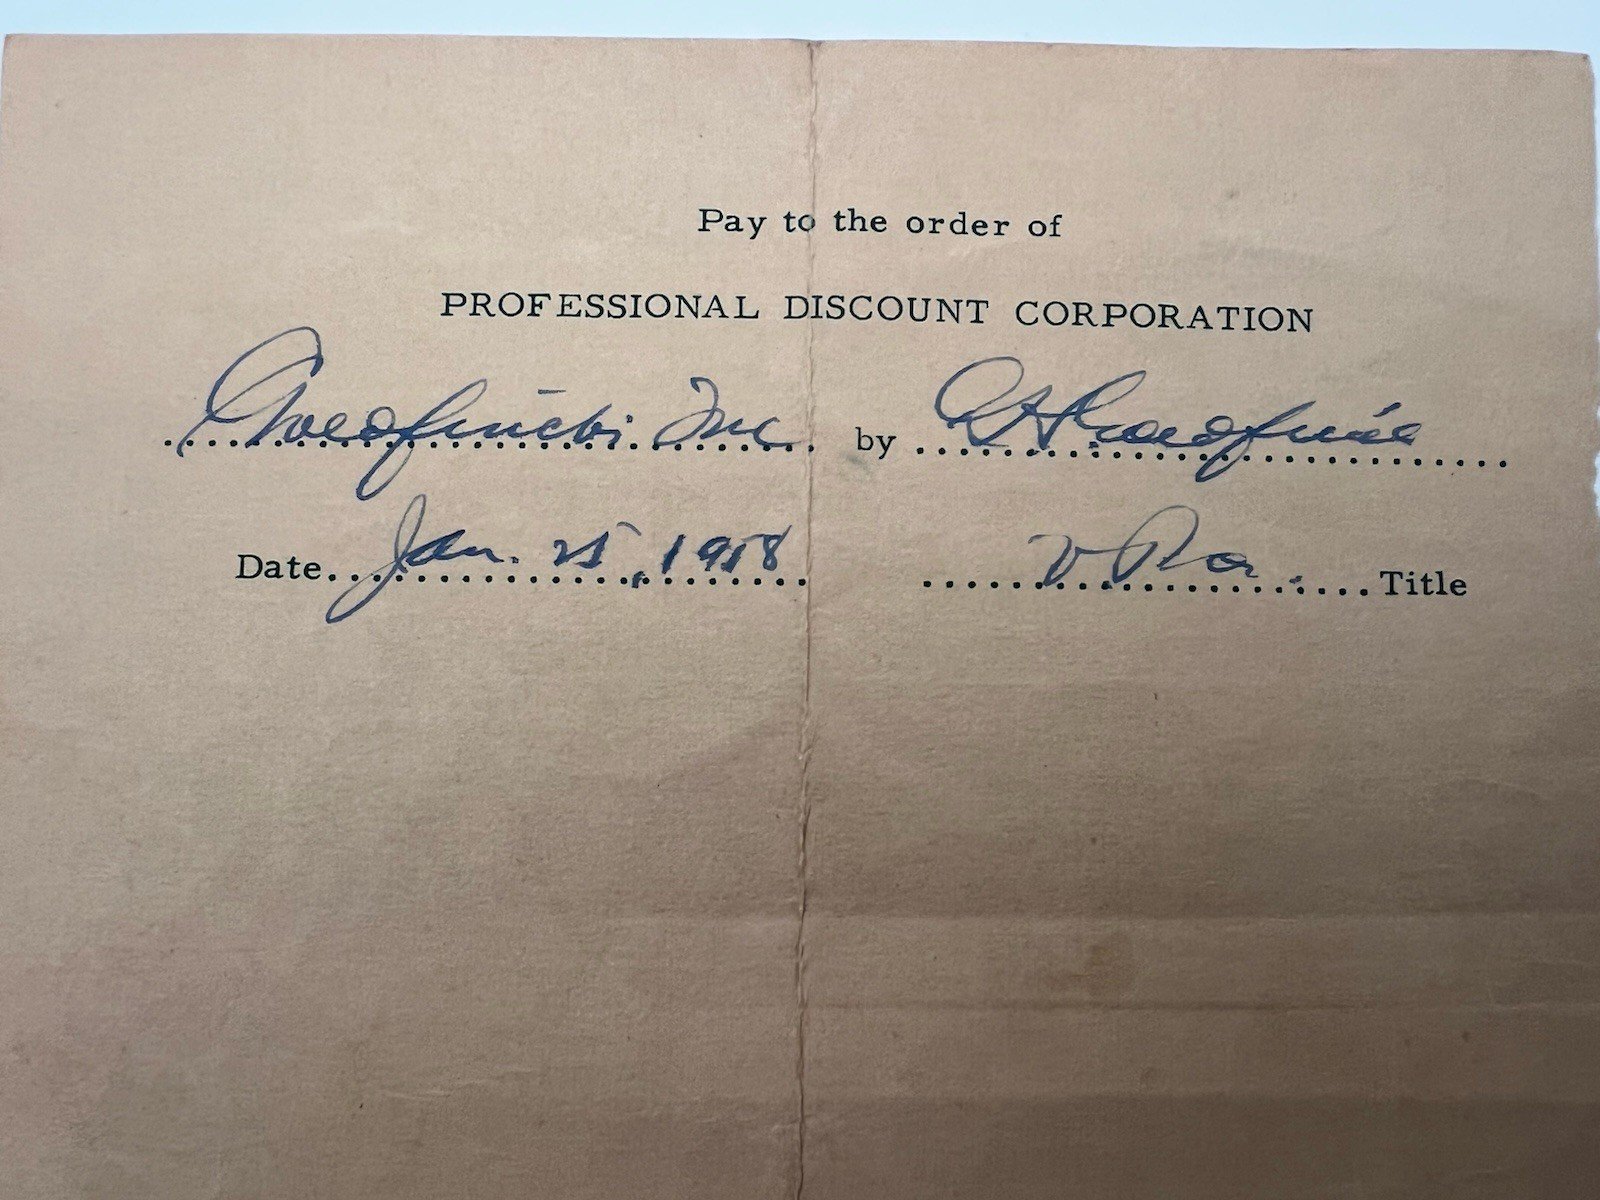 Pay to the order of
PROFESSIONAL DISCOUNT CORPORATION
Inc by
Date Jan. 25, 1958 V Pres. Title